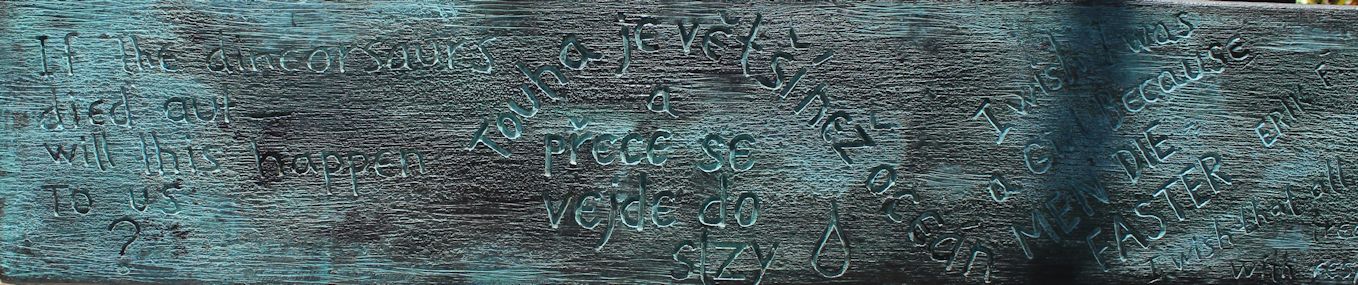 If the dineorsaurs
died aut
will this happen
To us
?
Touha je větší než oceán
a
přece se
vejde do
slzy
I wish I was
a Girl Because
MEN DIE
FASTER
ERIK F
I wish that all
with